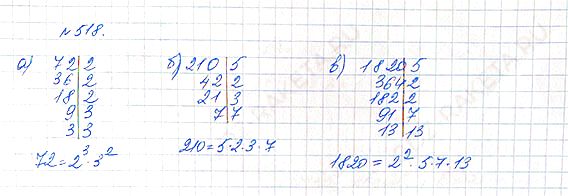 №518.
а) 72|2
36|2
18|2
9|3
3|3
72=2³·3²
б) 210|5
42|2
21|3
7|7
210=5·2·3·7
в) 1820|5
364|2
182|2
91|7
13|13
1820=2²·5·7·13